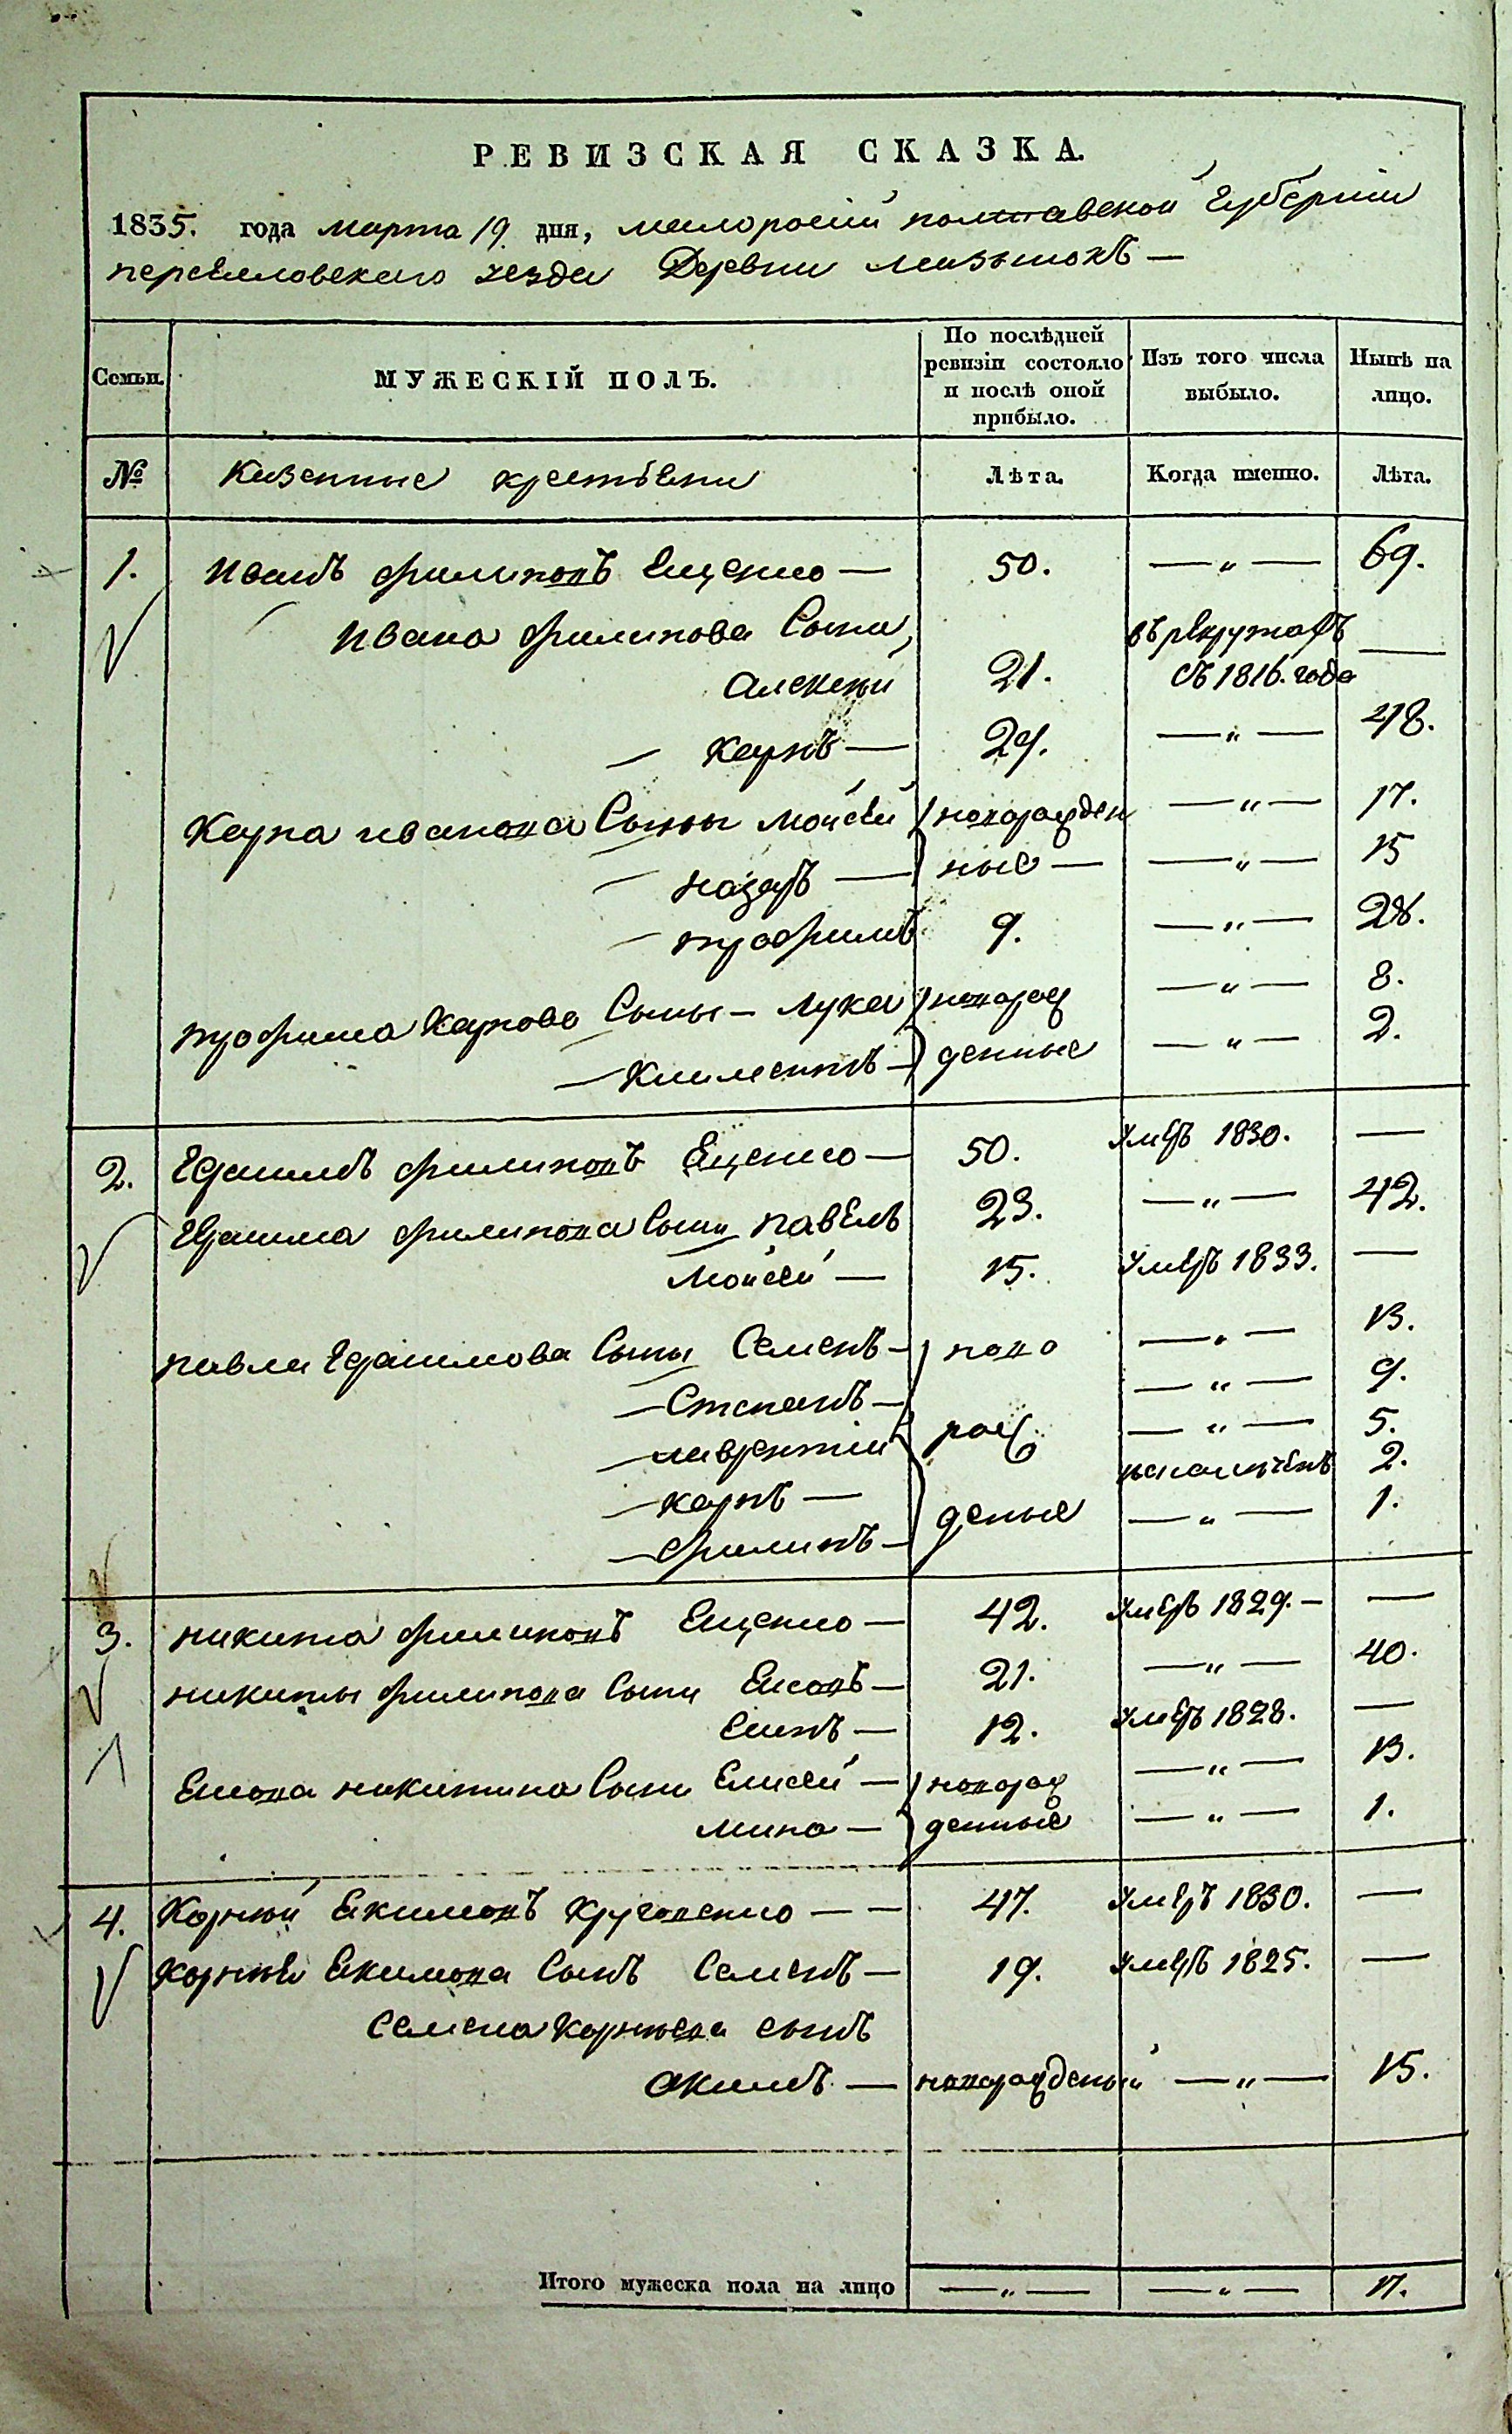 РЕВИЗСКАЯ СКАЗКА.
1835. года марта 19 дня, малоросiи полтавской Губернiи
переяловскаго уезда Деревни
Семьи.
МУЖЕСКІЙ ПОЛЪ.
По послѣдней ревизіи состояло и послѣ оной прибыло.
Изъ того числа выбыло.
Нынѣ на лицо.
№
Казенные крестьяни
Лѣта.
Когда именно.
Лѣта.
1. Иванъ филиповъ Ещенко — 50. — „ — 69.
Ивана филипова Сыни,
въ рекрутахъ
Алексѣй 21. съ 1816. года —
— Карпъ — 29. — „ — 48.
Карпа иванова Сыны Мойсей новорожден — „ — 17.
— назаръ — ные — — „ — 15
— трофимъ 9. — „ — 28.
трофима Карпова Сыны — Лука новорож — „ — 8.
— Климентъ — денные — „ — 2.
2. Герасимъ филиповъ Ещенко — 50. умеръ 1830. —
Герасима филипова Сыни павелъ 23. — „ — 42.
Мойсей — 15. умеръ 1833. —
павла Герасимова Сыны Семенъ — ново — „ — 13.
— Степанъ — — „ — 9.
— лаврентiй рож — „ — 5.
— карпъ — 2.
— филипъ — деные — „ — 1.
3. никита филиповъ Ещенко — 42. умеръ 1829. — —
никиты филипова Сыни — 21. — „ — 40.
— 12. умеръ 1828. —
никитина Сыни Елисей — новорож — „ — 13.
мина — денные — „ — 1.
4. Корнѣй Екимовъ — — 47. умеръ 1830. —
Корнѣя Екимова Сынъ Семенъ — 19. умеръ 1825. —
Семена Корнѣева сынъ
Акимъ — новорожденый — „ — 15.
Итого мужеска пола на лицо — „ — — „ — 17.